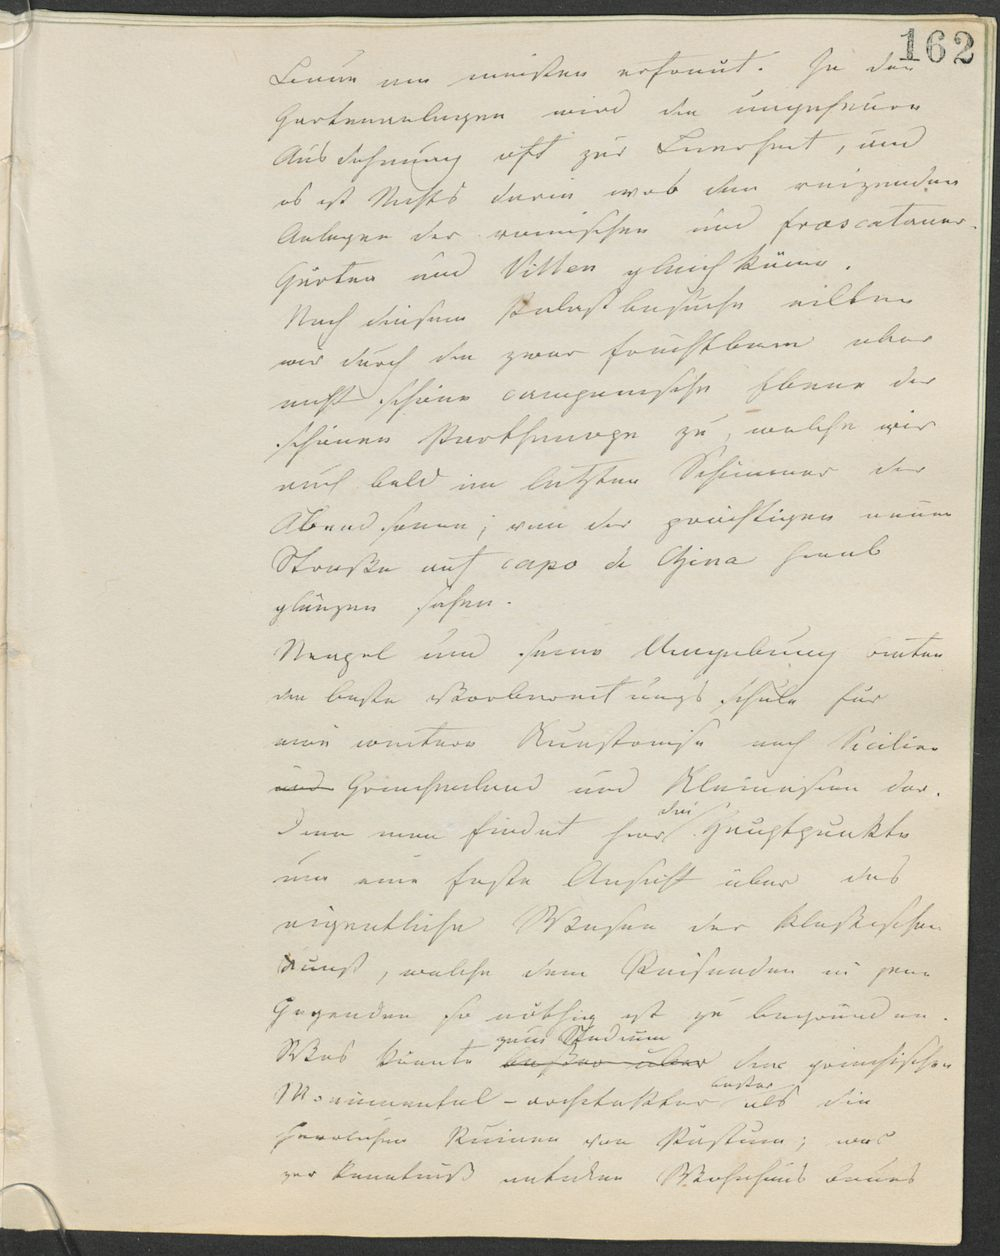 162
Laune am meisten erfreut. In den
Gartenanlagen wird die ungeheure
Ausdehnung oft zur Leerheit, und
es ist Nichts darin was den reizenden
Anlagen der römischen und frascataner
Gärten und Villen gleich käme.
Nach diesem Palastbesuche eilten
wir durch die zwar fruchtbare aber
nicht schöne campanische Ebene der
schönen Parthenope zu, welche wir
auch bald im letzten Schimmer der
Abendsonne; von der prächtigen neuen
Straße auf capo di China herab
glänzen sahen.
Neapel und seine Umgebung bieten
die beste Vorbereitungsschule für
eine weitere Kunstreise nach Sicilien
und Griechenland und Kleinasien dar.
Denn man findet hier die Hauptpunkte
um eine feste Ansicht über das
eigentliche Wesen der klassischen
Kunst, welche dem Reisenden in jene
Gegenden so nöthig ist zu begründen.
zum Studium
Was könnte besser über der griechischen
besser
Monumental-architektur als die
herrlichen Ruinen von Pästum; was
zur Kenntniß antiken Wohnhaus baues